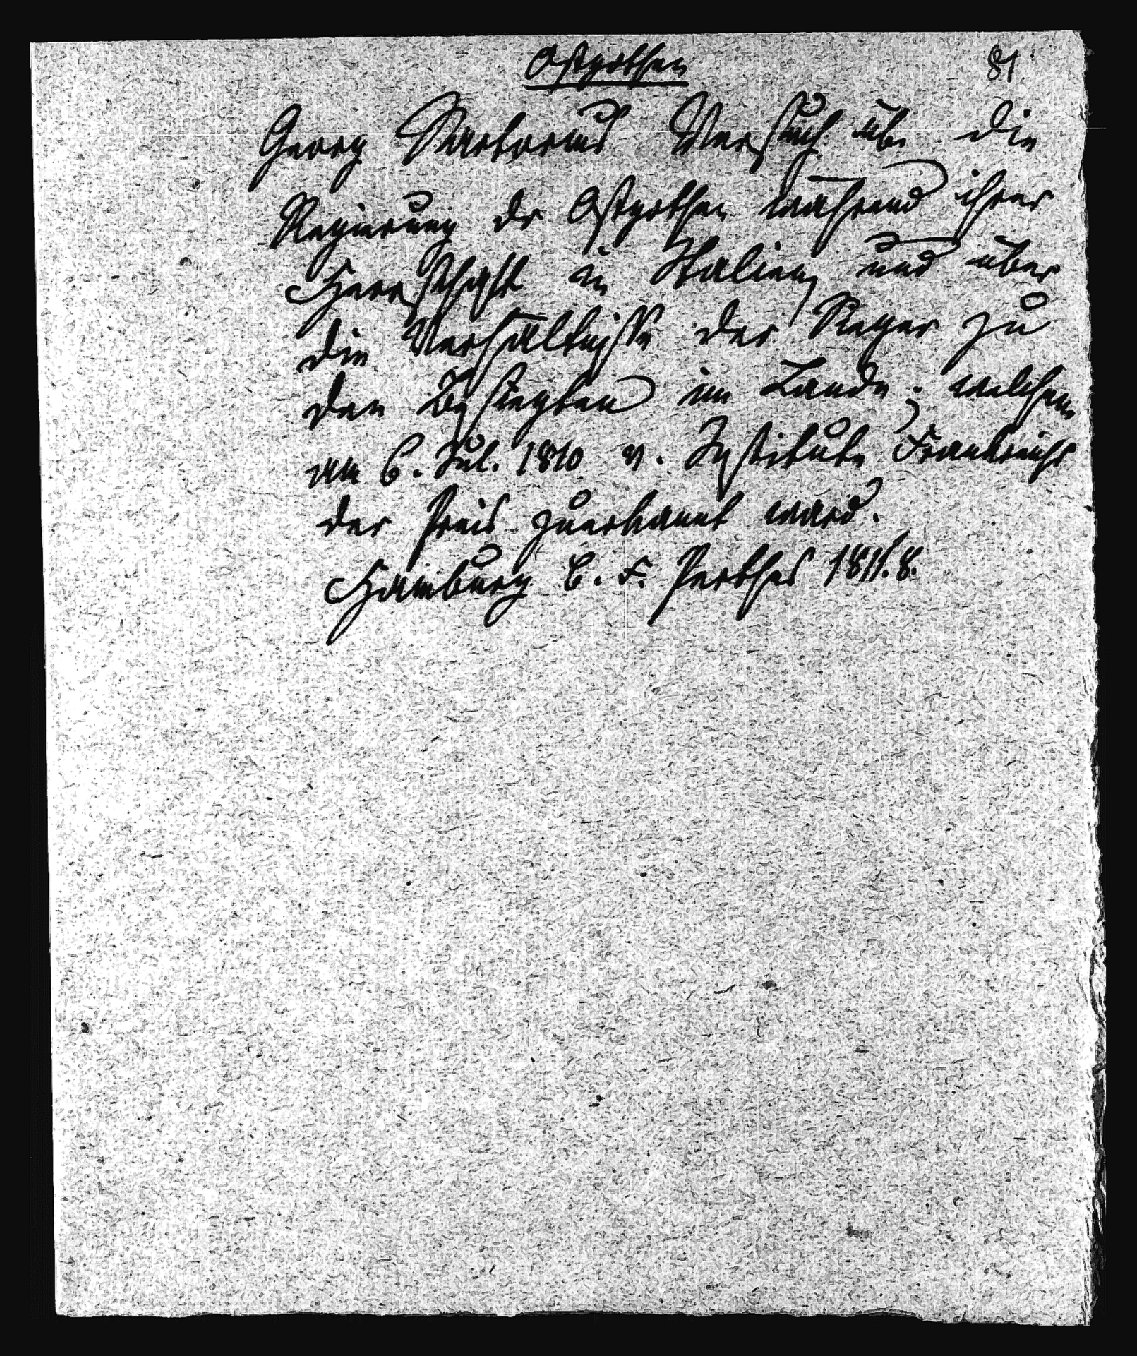 Ostgothen
81.
Georg Sartorius Versuch üb. die
Regierung der Ostgothen während ihrer
Herrschaft in Italien, und über
die Verhältnisse der Sieger zu
den Besiegten im Lande; welchem
am 6. Jul. 1810 v. Institute Frankreichs
der Preis zuerkannt ward.
Hamburg b. F. Perthes 1811. 8.